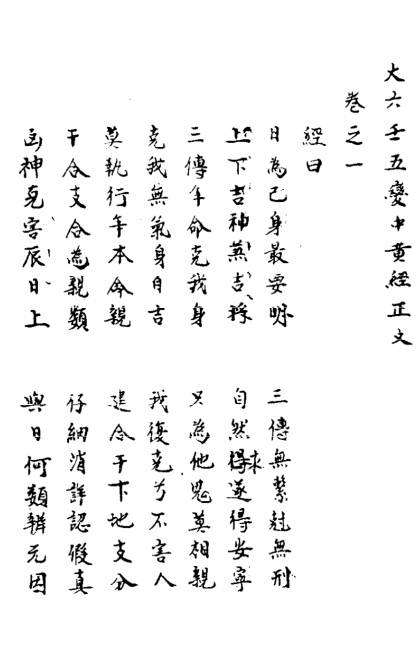 大六壬五變中黄經正文
卷之一
經曰
日為己身最要明 三傳無繫尅無刑
上下吉神兼吉 自然得求遂得安寧
三傳年命克我身 只為他鬼莫相親
克我無氣身自吉 我復克兮不害人
莫執行年本命親 建合干下地支分
干合支合為親類 仔細消詳認假真
凶神克害辰日上 與日何類辨元因